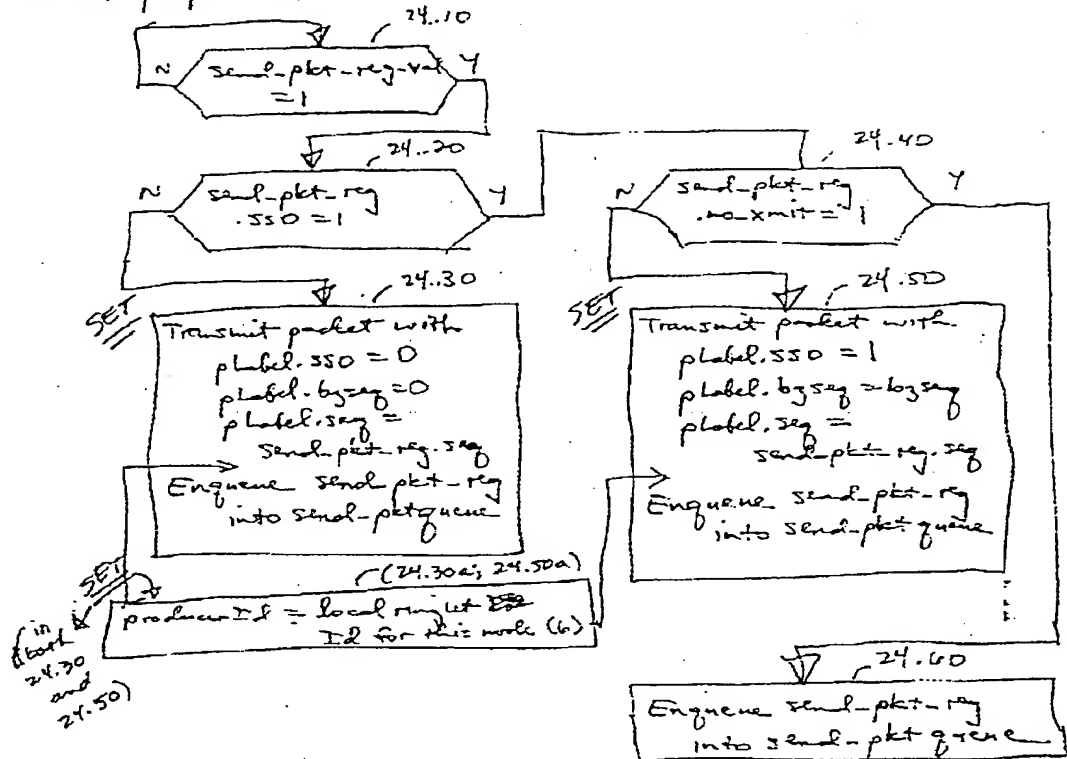 24..10
N
send-pkt-reg-val
= 1
Y
24..20
N
send-pkt-reg
.SSO = 1
Y
24.40
N
send-pkt-reg
.no-xmit = 1
Y
24..30
SET
Transmit packet with
pLabel.SSO = 0
pLabel.bzseq = 0
pLabel.seq =
send-pkt-reg.seq
Enqueue send-pkt-reg
into send-pktqueue
24.50
SET
Transmit packet with
pLabel.SSO = 1
pLabel.bzseq = bzseq
pLabel.seq =
send-pkt-reg.seq
Enqueue send-pkt-reg
into send-pkt queue
(24.30a; 24.50a)
SET
producerId = local ringlet
Id for this node (6)
(in
both
24.30
and
24.50)
24.60
Enqueue send-pkt-reg
into send-pkt queue